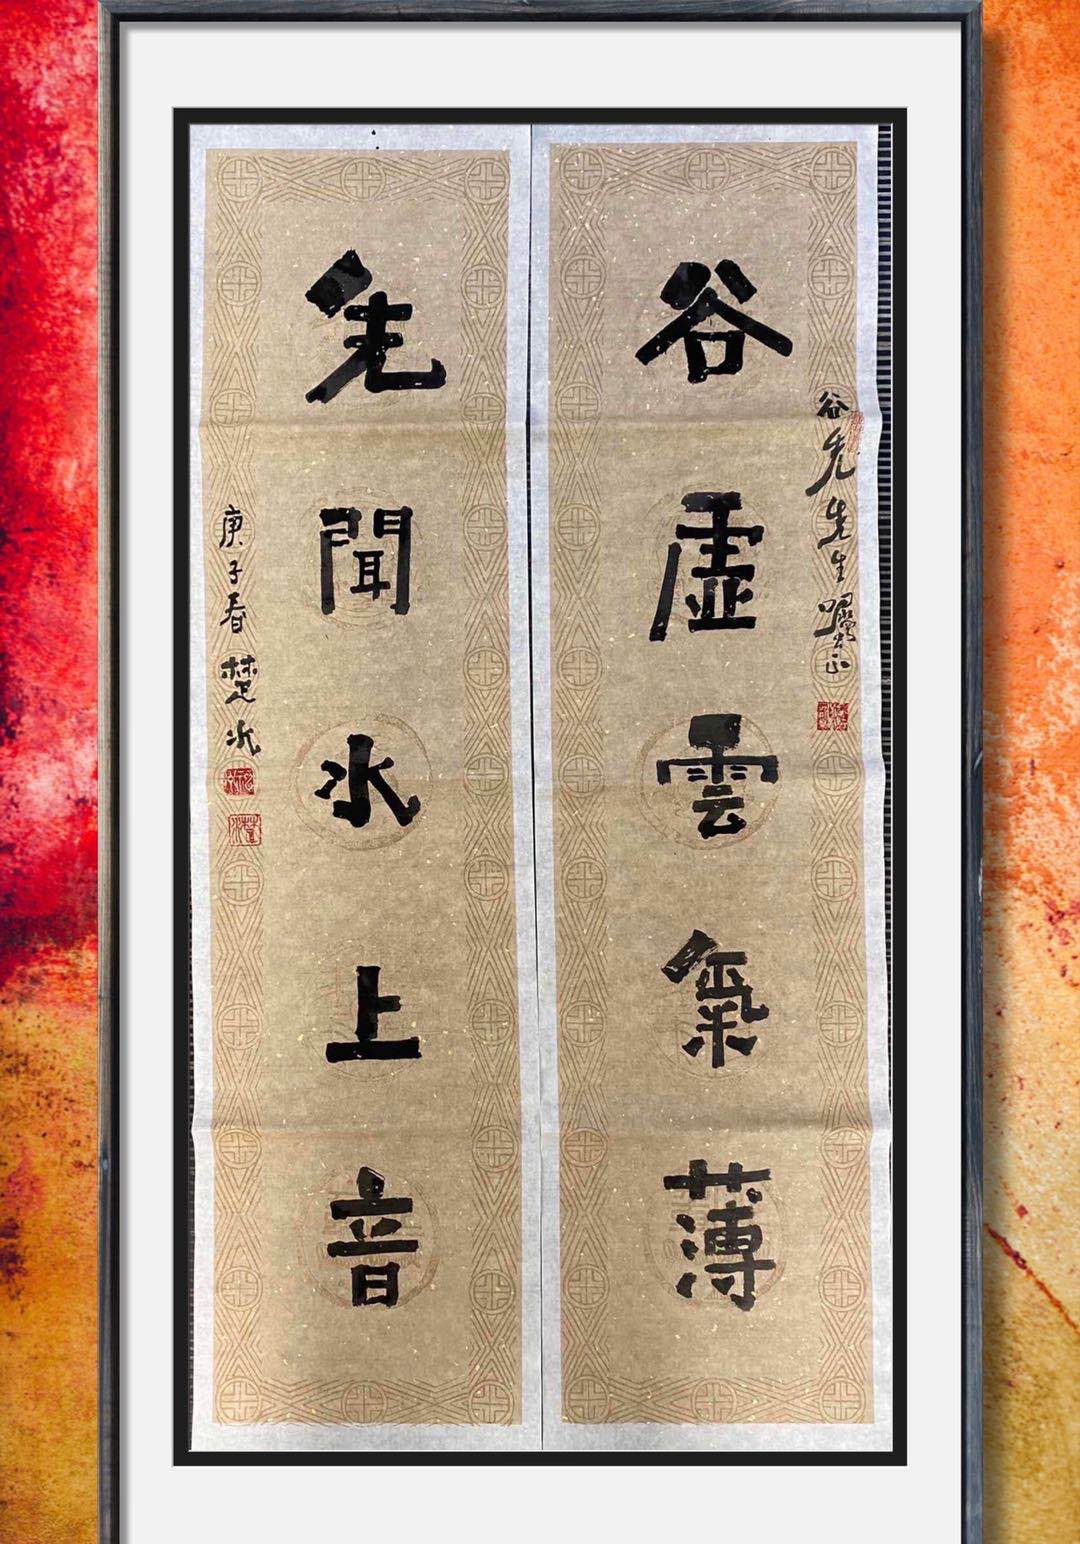 谷先先生囑正
谷虛雲氣薄
先聞水上音
庚子春楚水